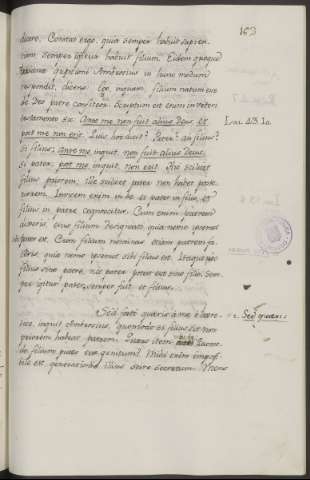 163
dicere. Constat ergo, quia semper habuit sapien-
tiam, semper igitur habuit filium. Eidem opponenti
respondit, dicens: Ego, inquam, filium natum esse
de Deo patre confiteor. Scriptum est enim in veteri
testamento sic: Ante me non fuit alius Deus, et
post me non erit. Quis hoc dicit? Pater? an filius?
Si filius; ante me, inquit, non fuit alius Deus,
si pater; post me, inquit, non erit. Hic scilicet
filius priorem; ille scilicet pater non habet poste-
riorem. Invicem enim in se et pater in filio, et
filius in patre cognoscitur. Cum enim patrem
dixeris, eius filium designasti, quia nemo ipsemet
sibi pater est. Cum filium nominas, etiam patrem fa-
teris, quia nemo ipsemet sibi filius est. Itaque nec
filius sine patre, nec pater potest esse sine filio. Sem-
per igitur pater, semper fuit et filius.
Sed forte quaeris a me o haere-
tice, inquit Ambrosius, quomodo si filius sit non
priorem habeat patrem. Quaero item
Mihi enim impos-
sibile est, generationis illius scire secretum. Mens
Isai. 43. 10
2. Sed quaeris